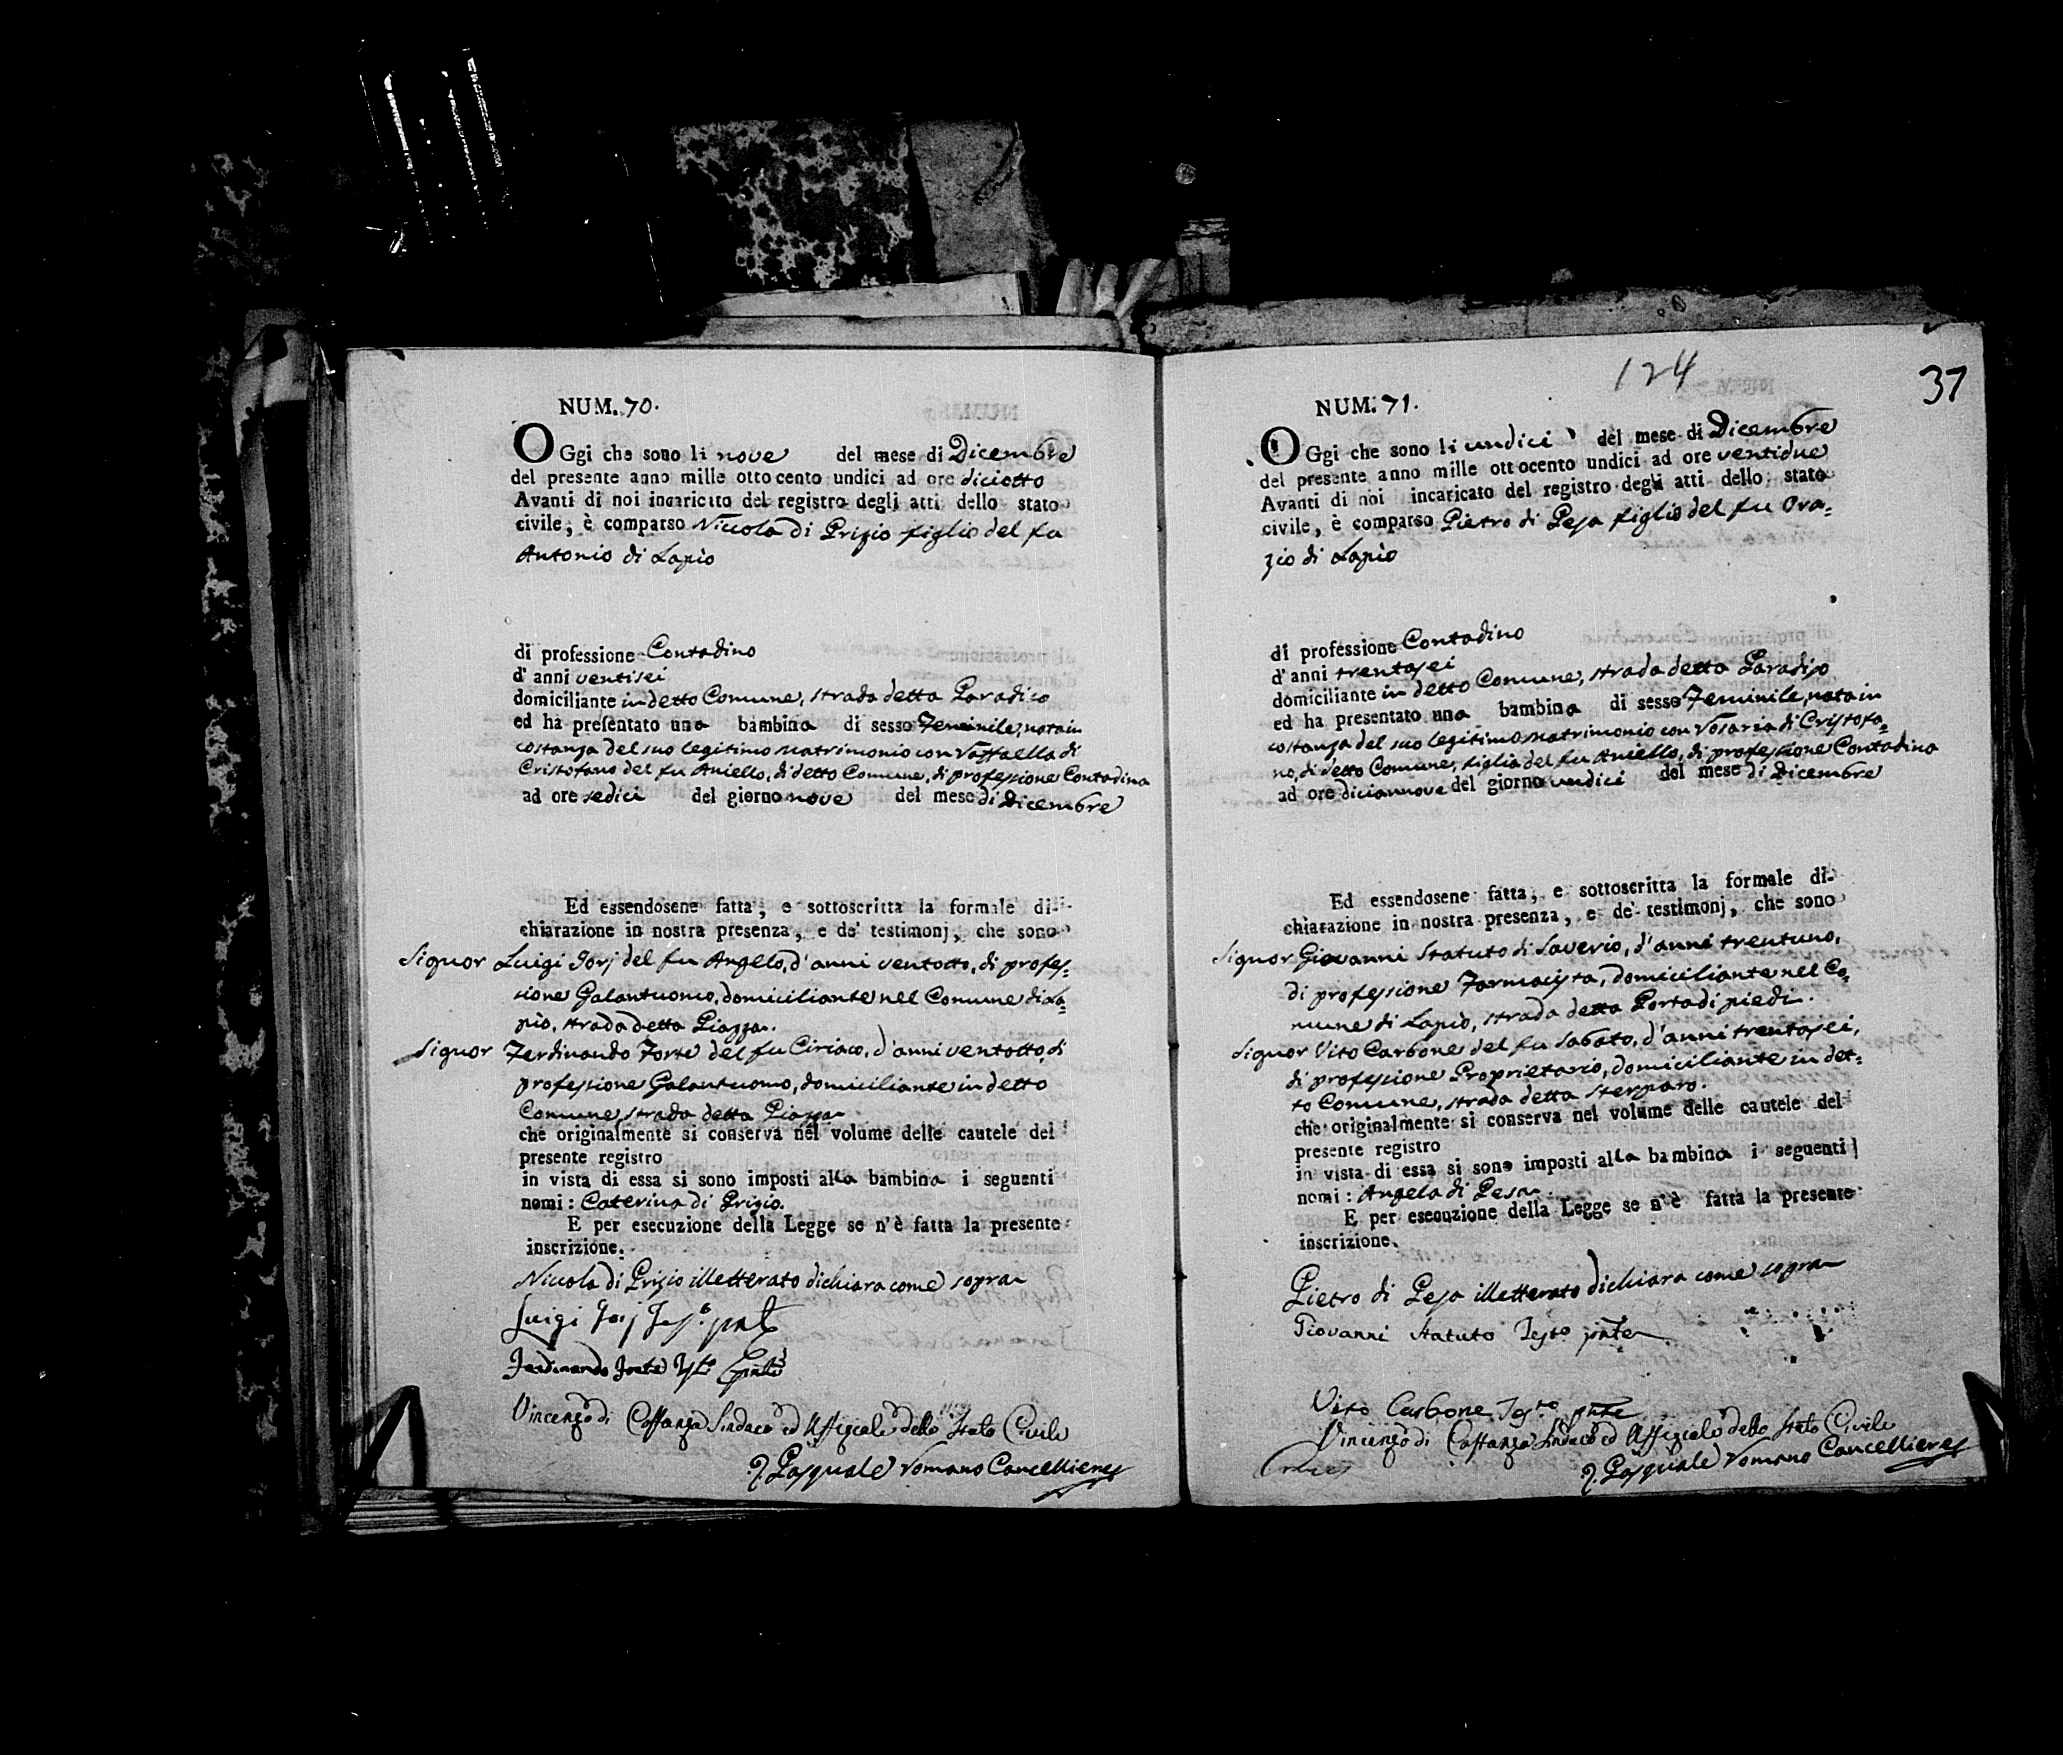 NUM. 70.
OGgi che sono li nove del mese di Dicembre
del presente anno mille ottocento undici ad ore diciotto
Avanti di noi incaricato del registro degli atti dello stato
civile, è comparso Niccola di Prizio figlio del fu
Antonio di Lapio
di professione Contadino
d'anni ventisei
domiciliante in detto Comune, strada detta Paradiso
ed ha presentato una bambina di sesso Feminile, nata in
costanza del suo legitimo matrimonio con Raffaella di
Cristofano del fu Aniello, di detto Comune, di professione Contadina
ad ore sedici del giorno nove del mese di Dicembre
Ed essendosene fatta, e sottoscritta la formale di-
chiarazione in nostra presenza, e de' testimonj, che sono
Signor Luigi Jorj del fu Angelo, d'anni ventotto, di profes=
sione Galantuomo, domiciliante nel Comune di La=
pio, strada detta Piazza.
Signor Ferdinando Forte del fu Ciriaco, d'anni ventotto, di
professione Galantuomo, domiciliante in detto
Comune, strada detta Piazza
che originalmente si conserva nel volume delle cautele del
presente registro
in vista di essa si sono imposti alla bambina i seguenti
nomi: Caterina di Prizio.
E per esecuzione della Legge se n'è fatta la presente
inscrizione.
Niccola di Prizio illetterato dichiara come sopra
Luigi Jorj
Ferdinando Forte
Vincenzo di Costanzo Sindaco ed Uffiziale dello Stato Civile
Pasquale Romano Cancelliere
124
37
NUM. 71.
OGgi che sono li undici del mese di Dicembre
del presente anno mille ottocento undici ad ore ventidue
Avanti di noi incaricato del registro degli atti dello stato
civile, è comparso Pietro di Pesa figlio del fu Ora=
zio di Lapio
di professione Contadino
d'anni trentasei
domiciliante in detto Comune, strada detta Paradiso
ed ha presentato una bambina di sesso Feminile, nata in
costanza del suo legitimo matrimonio con Rosaria di Cristofa=
no, di detto Comune, figlia del fu Aniello, di professione Contadina
ad ore diciannove del giorno undici del mese di Dicembre
Ed essendosene fatta, e sottoscritta la formale di-
chiarazione in nostra presenza, e de' testimonj, che sono
Signor Giovanni Statuto di Saverio, d'anni trentuno,
di professione Farmacista, domiciliante nel Co=
mune di Lapio, strada detta Porta di piedi.
Signor Vito Carbone del fu Sabato, d'anni trentasei,
di professione Proprietario, domiciliante in det=
to Comune, strada detta Sterparo.
che originalmente si conserva nel volume delle cautele del
presente registro
in vista di essa si sono imposti alla bambina i seguenti
nomi: Angela di Pesa
E per esecuzione della Legge se n'è fatta la presente
inscrizione.
Pietro di Pesa illetterato dichiara come sopra
Giovanni Statuto Testo pnte
Vito Carbone Testo pnte
Vincenzo di Costanzo Sindaco ed Uffiziale dello Stato Civile
Pasquale Romano Cancelliere